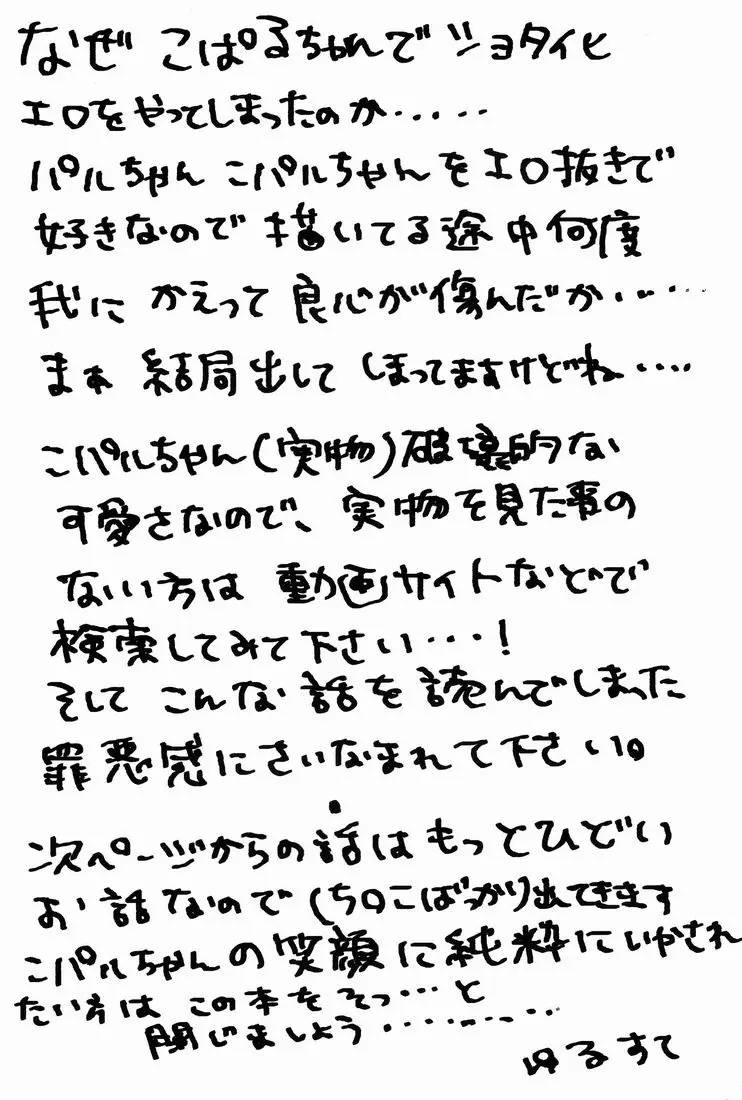 なぜ こぱるちゃんで ショタイヒ
エロをやってしまったのか.....
パルちゃん こパルちゃんをエロ抜きで
好きなので 描いてる途中何度
我に かえって 良心が傷んだか.....
まぁ 結局出して しまってますけどね....
こパルちゃん(実物)破壊的な
可愛さなので、実物を見た事の
ない方は 動画サイトなどで
検索してみて下さい...!
そして こんな話を読んでしまった
罪悪感にさいなまれて下さい。
次ページからの話は もっとひどい
お話なので(ち○こばっかり)出てきます
こパルちゃんの笑顔に純粋にいやされ
たい方は この本をそっ...と
閉じましょう........
ゆるすて